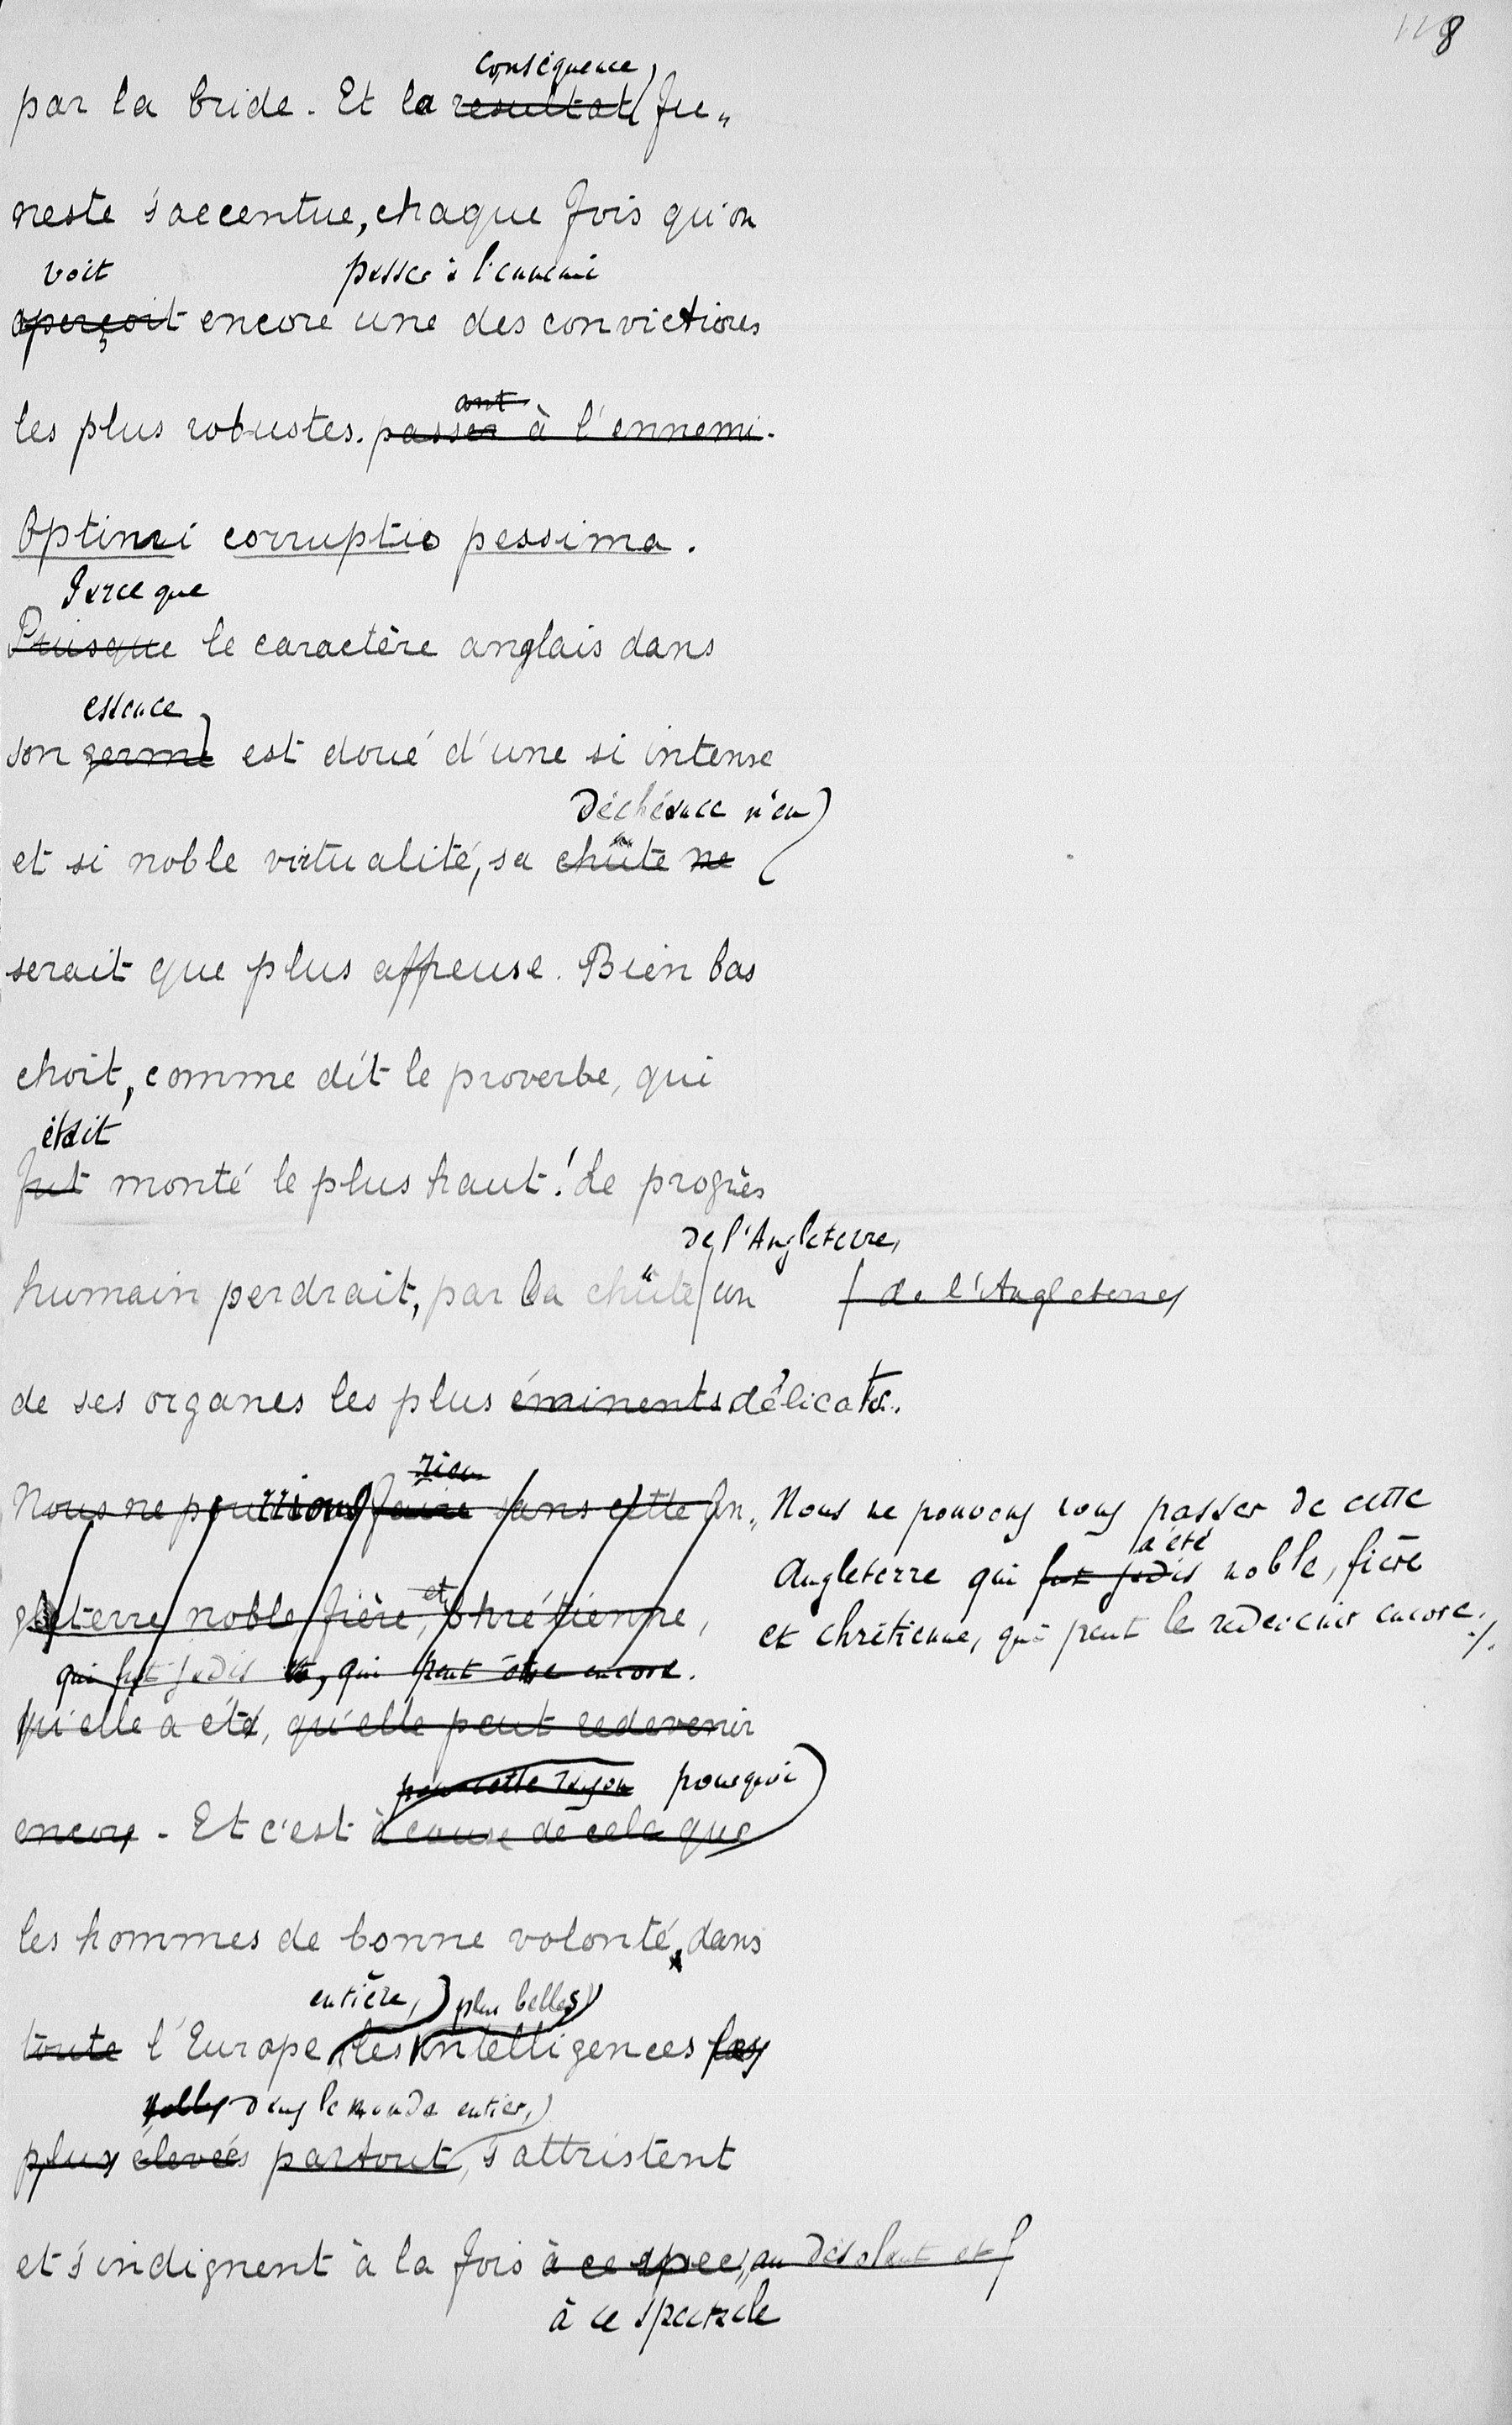 8
conséquence
par la bride. Et la resultat fu„
neste s'accentue, chaque fois qu'on
voit passer à l'ennemi
aperçoit encore une des convictions
ant
les plus robustes. passer à l'ennemi.
Optimi corruptio pessima.
Parce que
Puisque le caractère anglais dans
essence
son germe est doué d'une si intense
déchéance n'en
et si noble virtualité, sa chûte ne
serait que plus affreuse. Bien bas
choit, comme dit le proverbe, qui
était
fut monté le plus haut! Le progrès
de l'Angleterre,
humain perdrait, par la chûte un de l'Angleterre
de ses organes les plus éminents délicats.
rien
Nous ne pourrions faire sans cette An„
gleterre noble, fière, et chrétienne,
qui fut jadis, qui peut être encore.
qu'elle a été, qu'elle peut redevenir
Nous ne pouvons nous passer de cette
a été
Angleterre qui fut jadis noble, fière
et chrétienne, qui peut le redevenir encore.
pour cette raison pourquoi
encore. Et c'est à cause de cela que
les hommes de bonne volonté, dans
entière, plus belles
toute l'Europe, les intelligences les
dans le monde entier,
plus élevées partout, s'attristent
et s'indignent à la fois à ce spec„ au désolant et
à ce spectacle